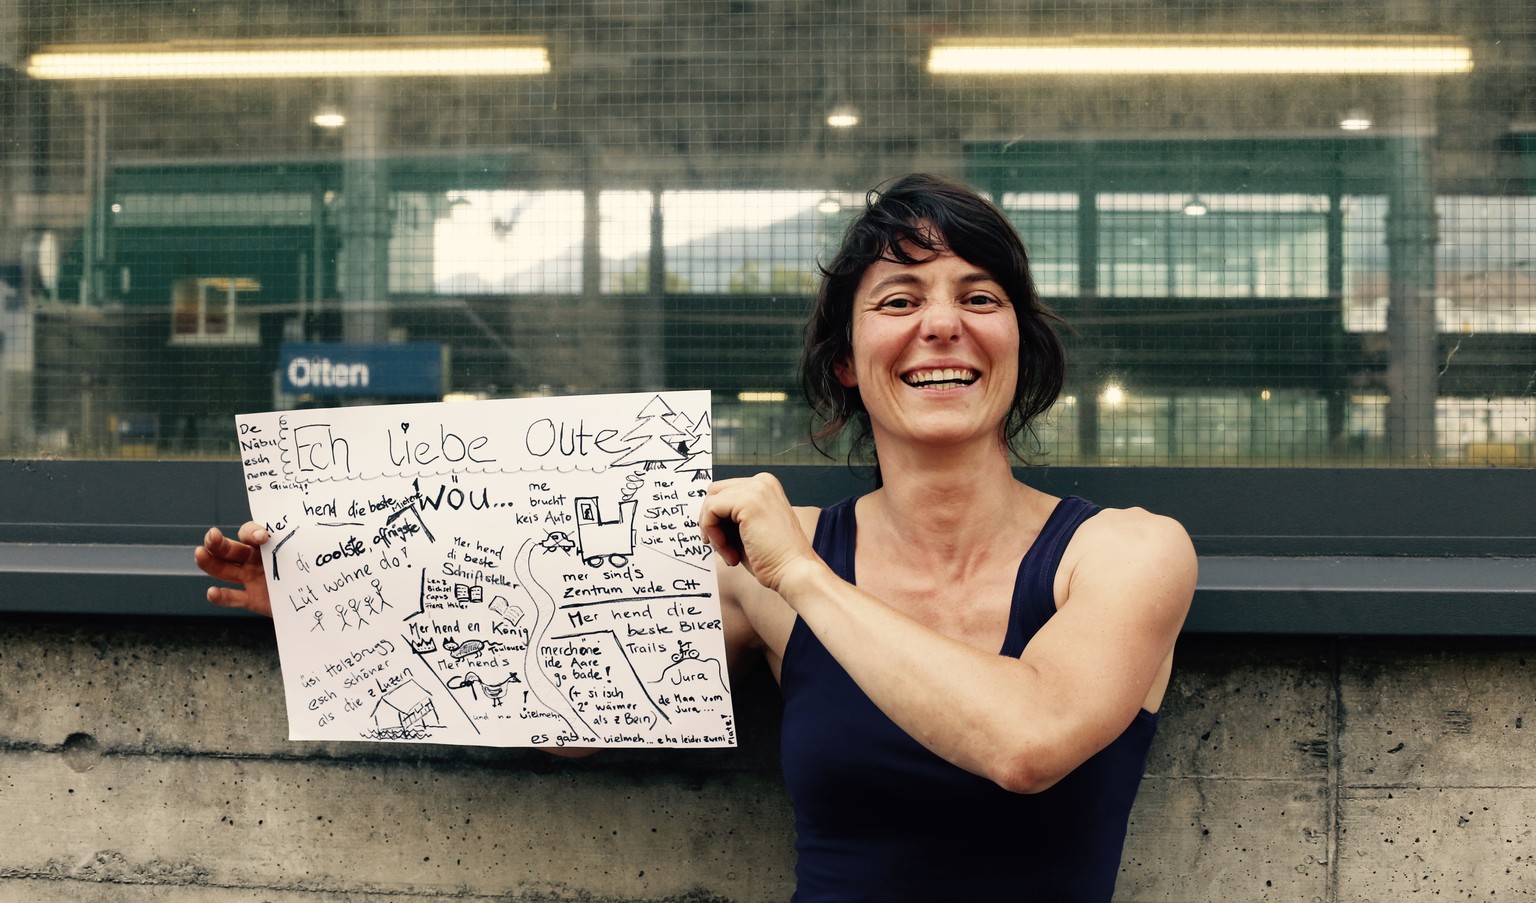 Olten
De
Näbu
esch
nome
es Grücht!
Ech liebe Oute
wöu...
Mer hend die beste
di coolste, afnigste
Lüt wohne do!
me
brucht
keis Auto
Mer
sind es
STADT
Läbe
wie ufem
LAND
Mer hend
di beste
Schriftsteller
Lenz
Bichsel
Capus
Franz Hohler
mer sind's
zentrum vode CH
Mer hend die
beste BIKER
Trails
Jura
de Maa vom
Jura...
Mer hend en König
Toulouse
Mer hend's
Cap
und no vielmehr!
merchöne
ide Aare
go bade!
(+ si isch
2° wärmer
als z Bern)
üsi Holzbrugg
esch schöner
als die z Luzern
es gäb no vielmeh... e ha leider zweni
Platz!